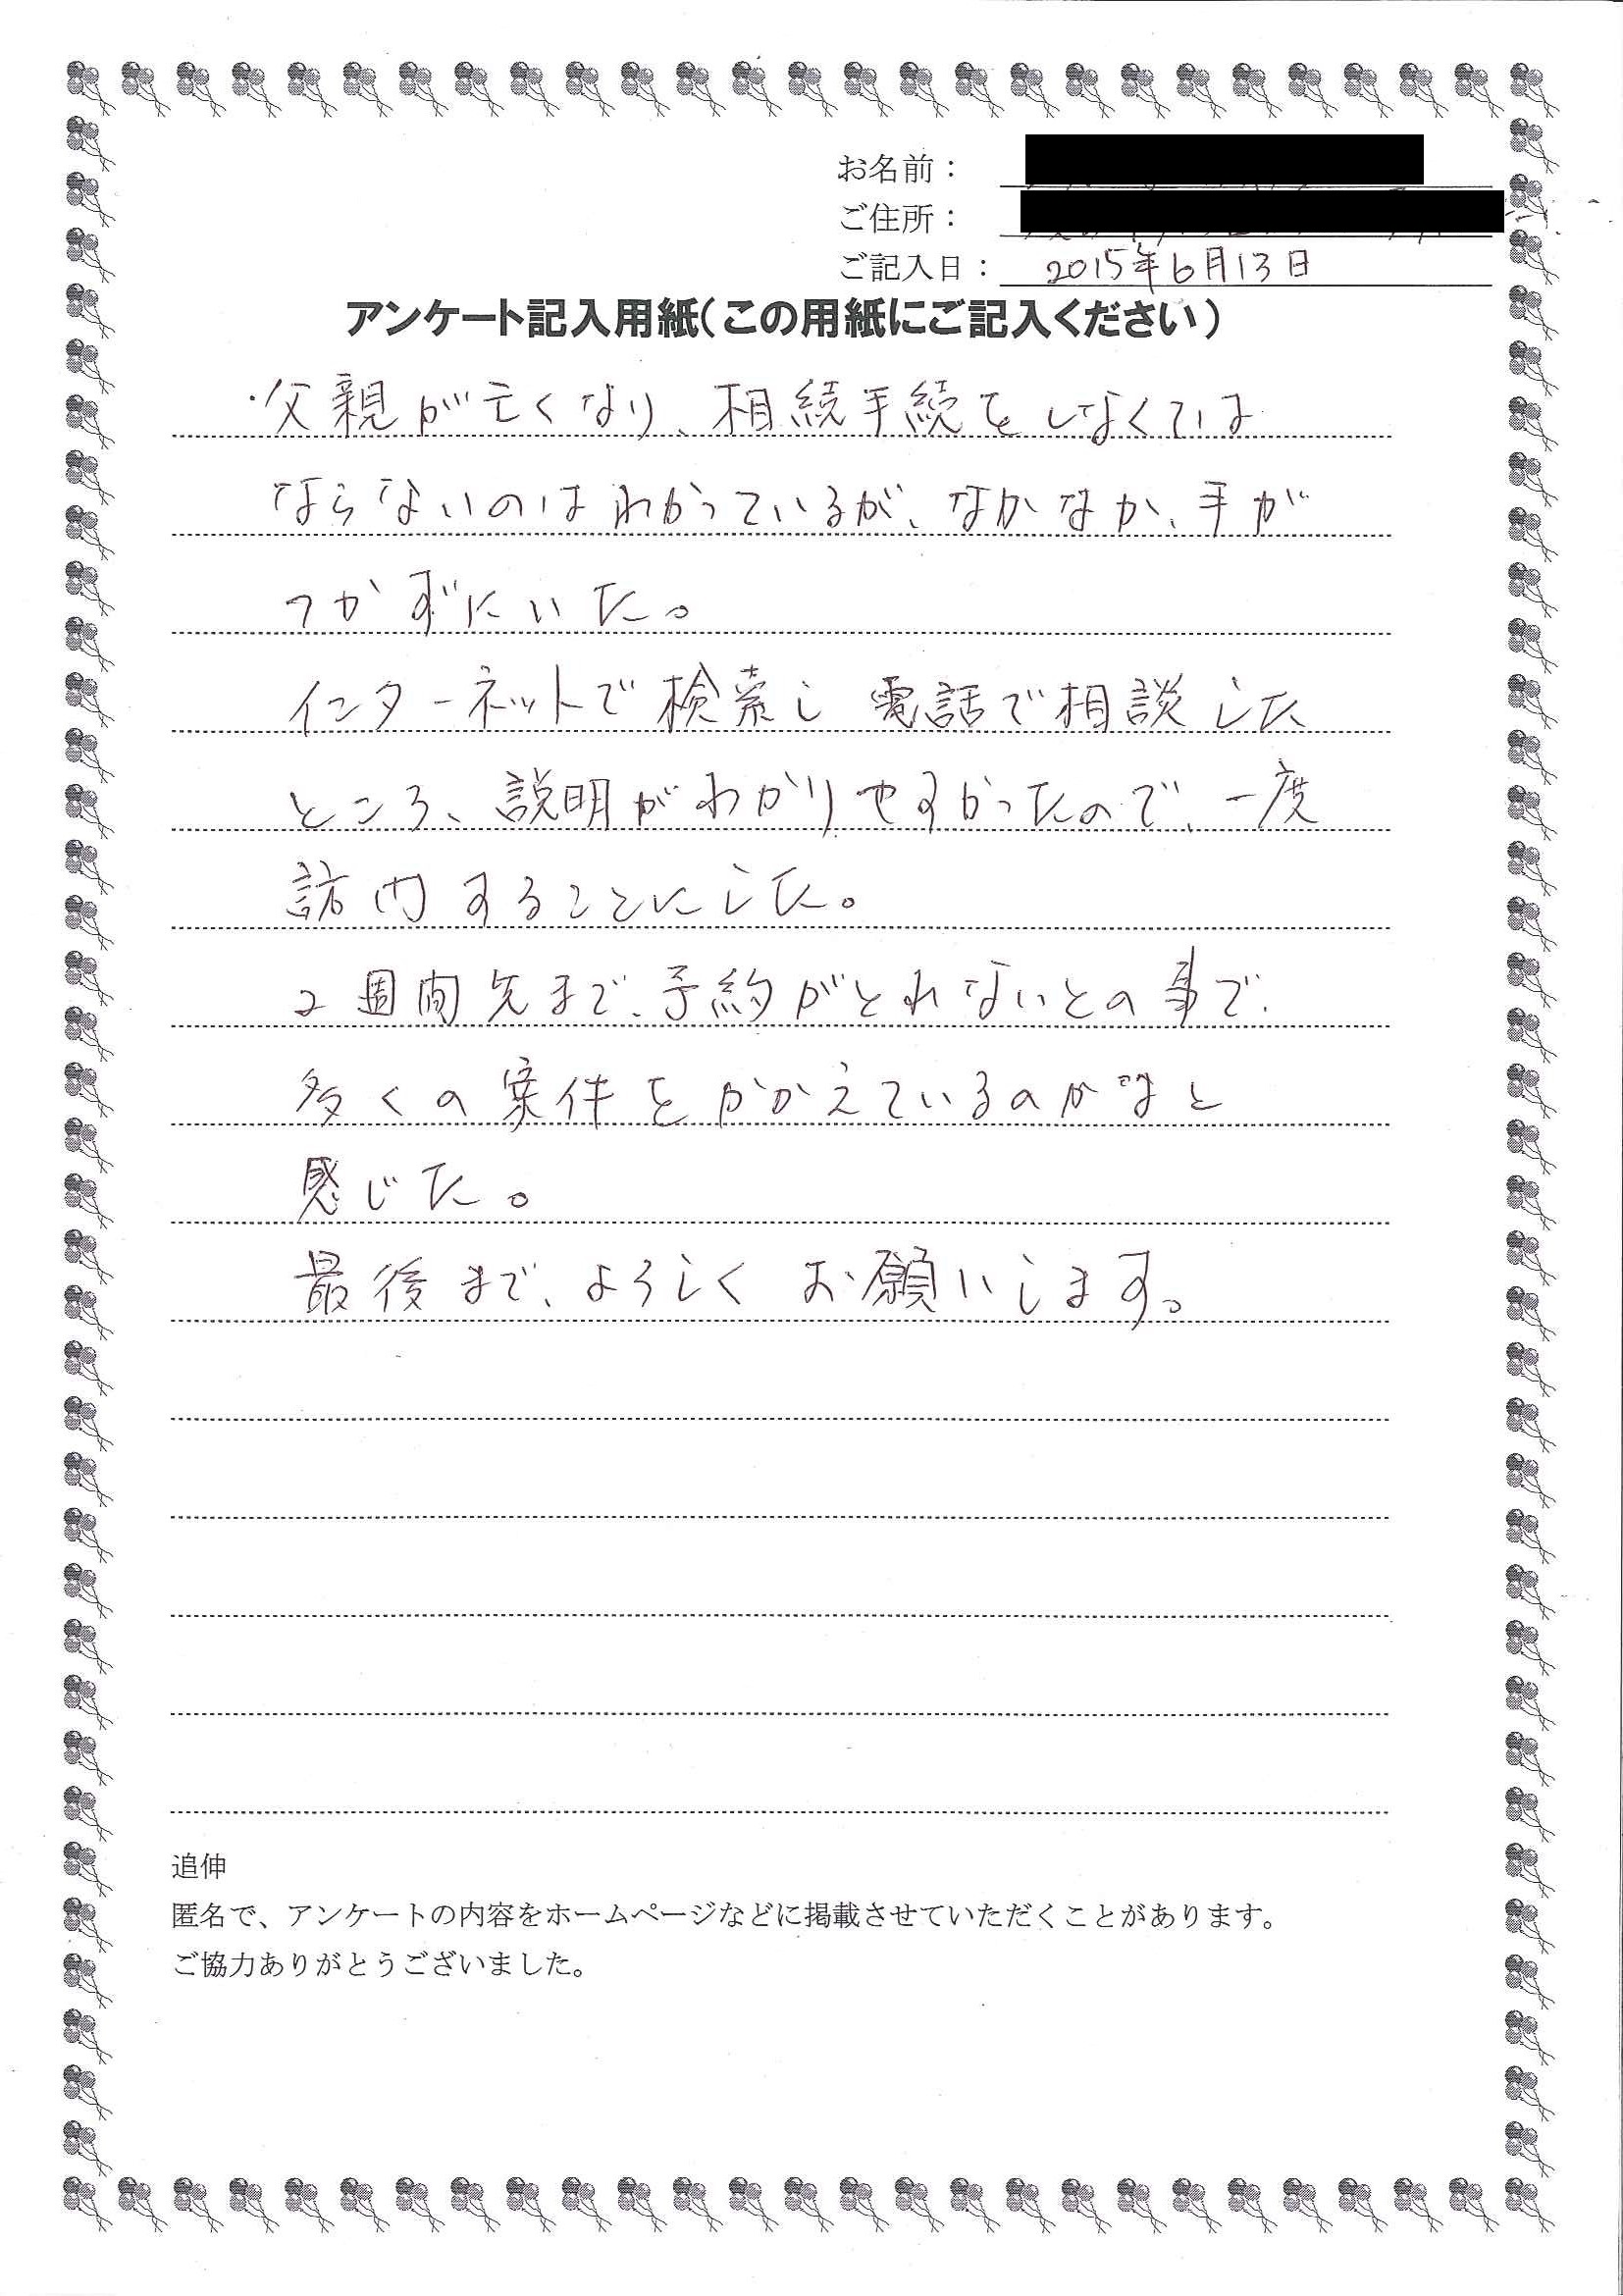 お名前：
ご住所：
ご記入日： 2015年6月13日
アンケート記入用紙（この用紙にご記入ください）
・父親が亡くなり、相続手続をしなくては
ならないのはわかっているが、なかなか、手が
つかずにいた。
インターネットで検索し 電話で相談した
ところ、説明がわかりやすかったので、一度
訪問することにした。
2週間先まで、予約がとれないとの事で、
多くの案件をかかえているのがなと
感じた。
最後まで、よろしくお願いします。
追伸
匿名で、アンケートの内容をホームページなどに掲載させていただくことがあります。
ご協力ありがとうございました。